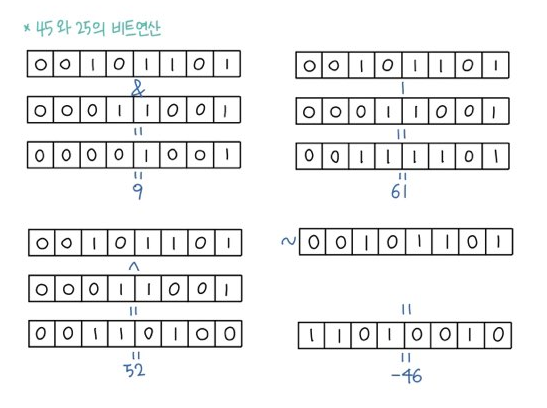 * 45와 25의 비트연산
0 0 1 0 1 1 0 1
&
0 0 0 1 1 0 0 1
=
0 0 0 0 1 0 0 1
=
9
0 0 1 0 1 1 0 1
|
0 0 0 1 1 0 0 1
=
0 0 1 1 1 1 0 1
=
61
0 0 1 0 1 1 0 1
^
0 0 0 1 1 0 0 1
=
0 0 1 1 0 1 0 0
=
52
~ 0 0 1 0 1 1 0 1
=
1 1 0 1 0 0 1 0
=
-46